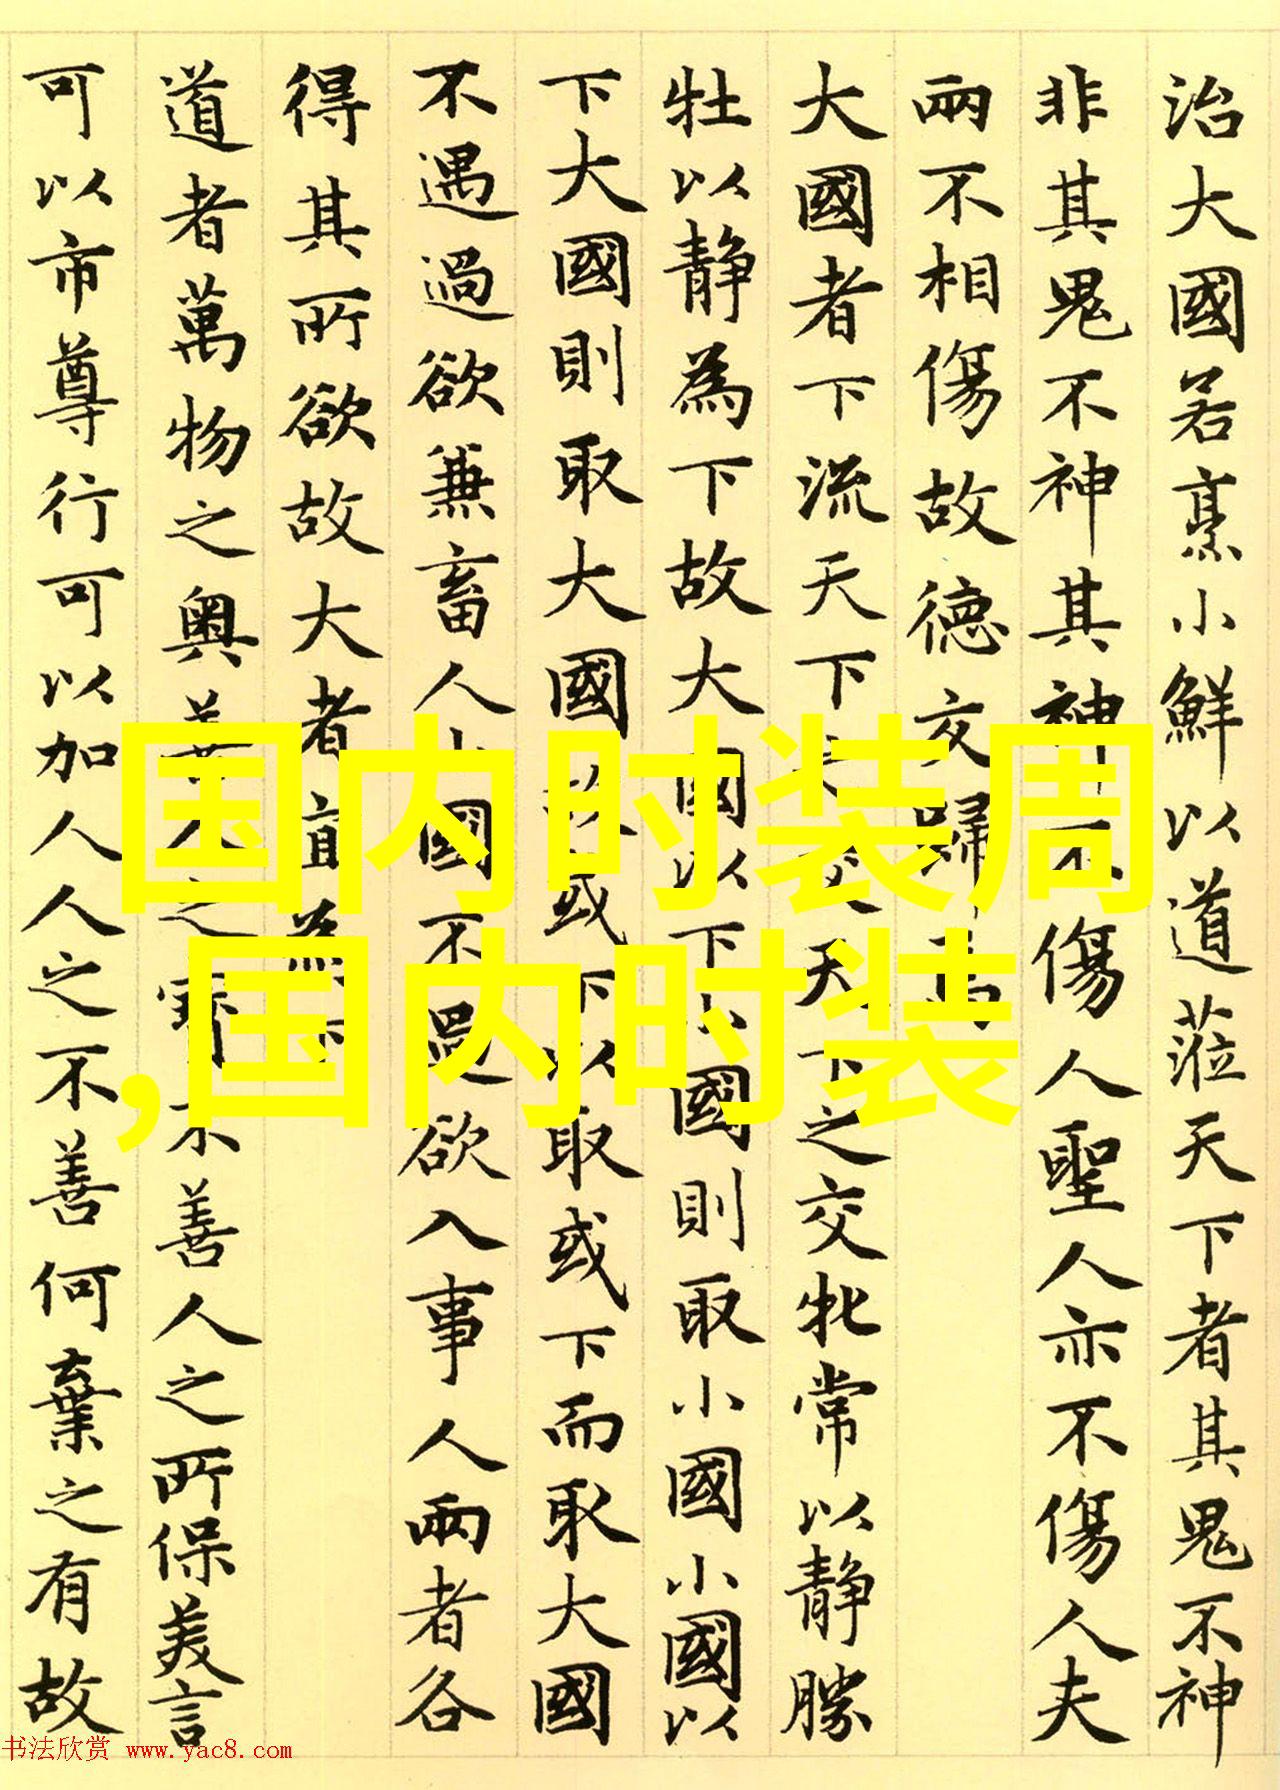 治大國若烹小鮮以道蒞天下者其鬼不神
非其鬼不神其神不傷人聖人亦不傷人夫
兩不相傷故德交歸焉
大國者下流天下之交天下之交牝常以静勝
牡以静為下故大國以下小國則取小國小國以
下大國則取大國故或下以取或下而取大國
不遇過欲兼畜人小國不過欲入事人兩者各
得其所欲故大者宜為下
道者萬物之奥善人之寶不善人之所保美言
可以市尊行可以加人人之不善何棄之有故
国内时装周
,国内时装
书法欣赏 www.yac8.com